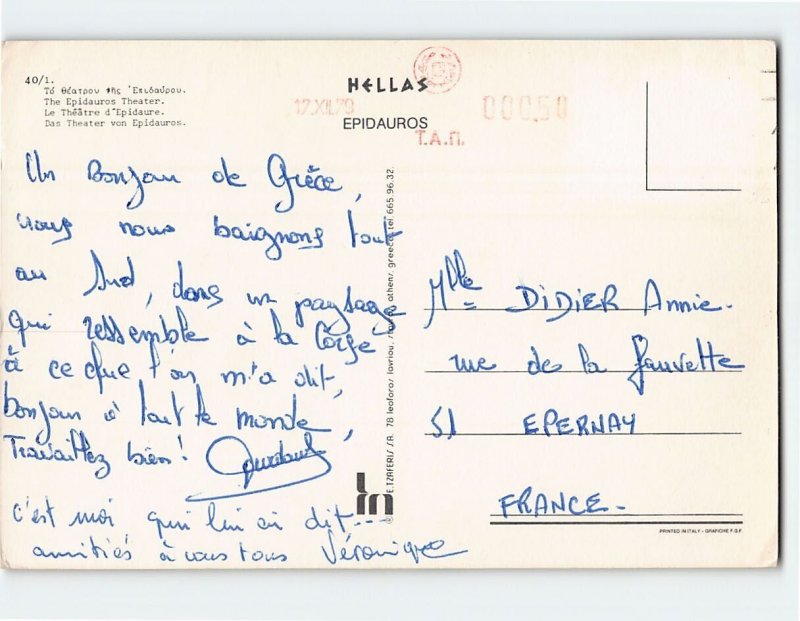 40/1.
Τό θέατρον τῆς Ἐπιδαύρου.
The Epidauros Theater.
Le Théâtre d'Epidaure.
Das Theater von Epidauros.
HELLAS
EPIDAUROS
17.XII.79
000,50
Τ.Α.Π.
Un Bonjour de Grèce,
nous nous baignons tout
au Sud, dans un paysage
qui ressemble à la Corse
à ce que l'on m'a dit,
bonjour à tout le monde,
Travaillez bien!
c'est moi qui lui ai dit---
amitiés à vous tous Véronique
E. TZAFERIS SA. 78 athens, greece tel. 665 96.32.
Mlle DIDIER Annie.
rue de la fauvette
51 EPERNAY
FRANCE.
PRINTED IN ITALY - GRAFICHE F.G.F.